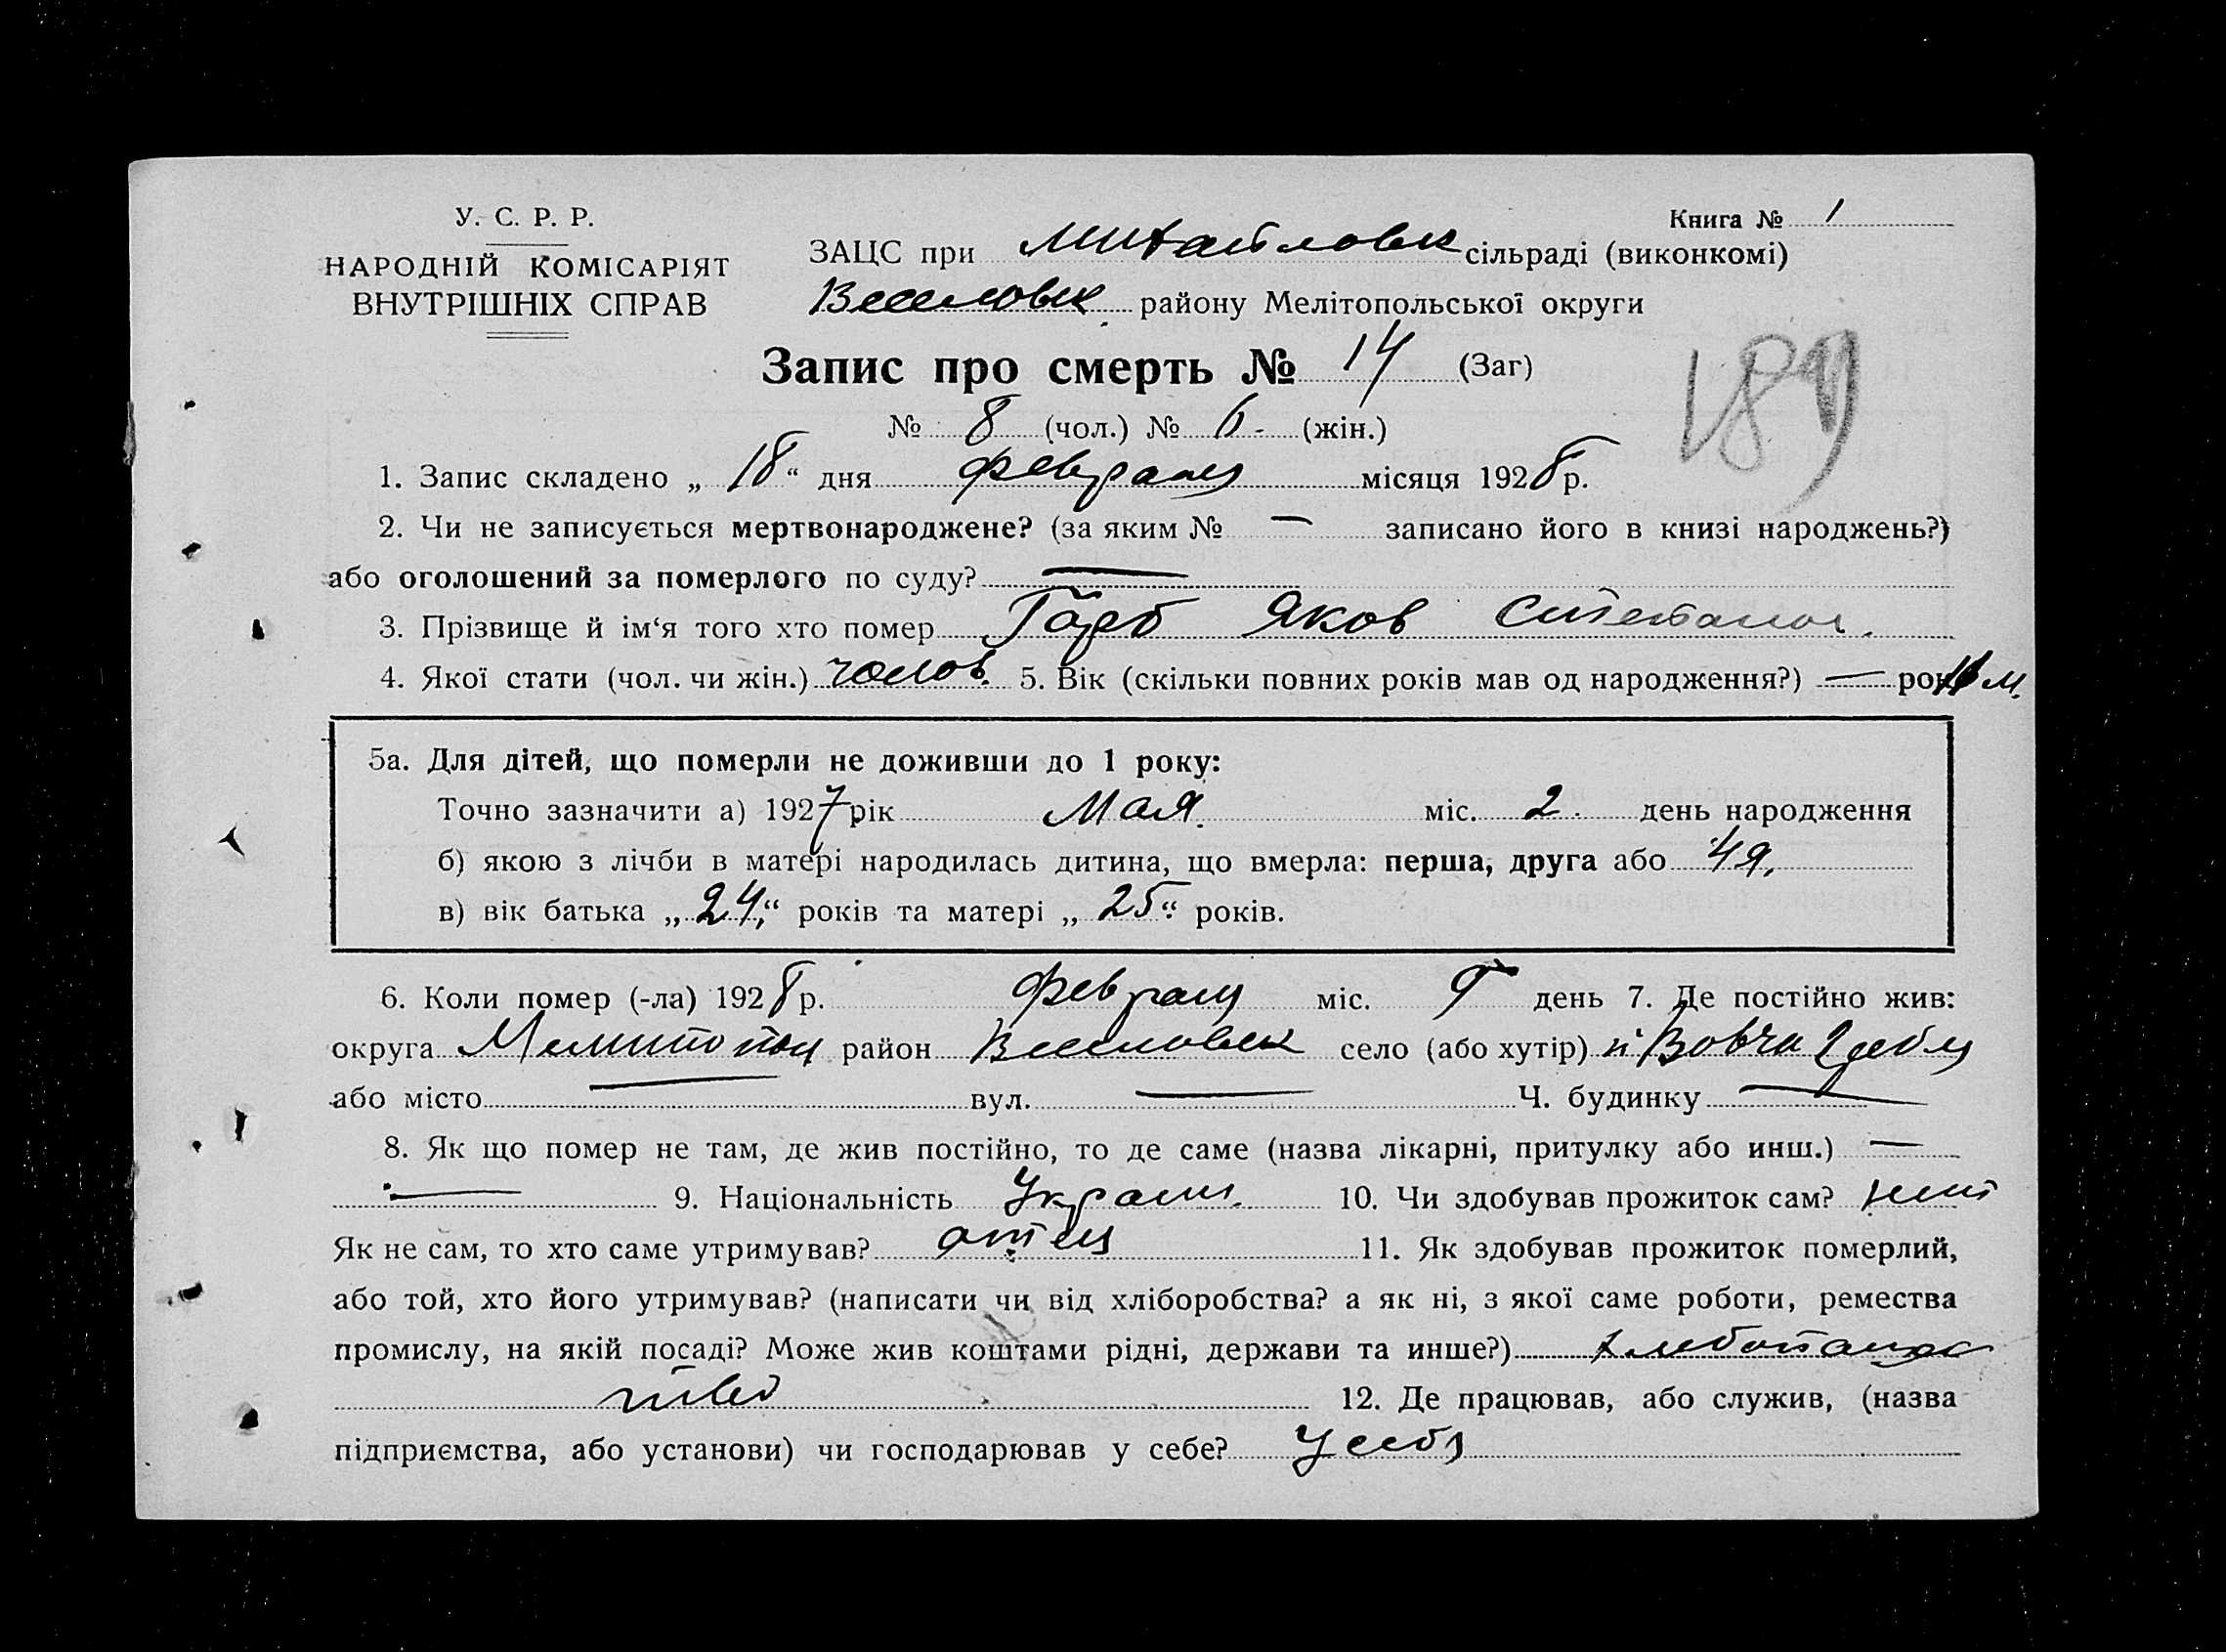 У. С. Р. Р.
НАРОДНІЙ КОМІСАРІЯТ
ВНУТРІШНІХ СПРАВ
Книга № 1
ЗАЦС при Михайловск сільраді (виконкомі)
Веселовск. району Мелітопольської округи
Запис про смерть № 14 (Заг)
189
№ 8 (чол.) № 6 - (жін.)
1. Запис складено „ 18 “ дня февраля місяця 1928 р.
2. Чи не записується мертвонароджене? (за яким № — записано його в книзі народжень?)
або оголошений за померлого по суду? —
3. Прізвище й ім‘я того хто помер Яков Степанов.
4. Якої стати (чол. чи жін.) чолов. 5. Вік (скільки повних років мав од народження?) — рок м.
5а. Для дітей, що померли не доживши до 1 року:
Точно зазначити а) 1927 рік Мая. міс. 2. день народження
б) якою з лічби в матері народилась дитина, що вмерла: перша, друга або 4я.
в) вік батька „ 24 “ років та матері „ 25 “ років.
6. Коли помер (-ла) 1928 р. февраля міс. 9 день 7. Де постійно жив:
округа Мелитопол район Веселовск село (або хутір)
або місто — вул. — Ч. будинку —
8. Як що помер не там, де жив постійно, то де саме (назва лікарні, притулку або инш.) —
— 9. Національність Украин. 10. Чи здобував прожиток сам? нет
Як не сам, то хто саме утримував? отец 11. Як здобував прожиток померлий,
або той, хто його утримував? (написати чи від хліборобства? а як ні, з якої саме роботи, ремества
промислу, на якій посаді? Може жив коштами рідні, держави та инше?) хлебопаше
ство 12. Де працював, або служив, (назва
підприємства, або установи) чи господарював у себе? У себя